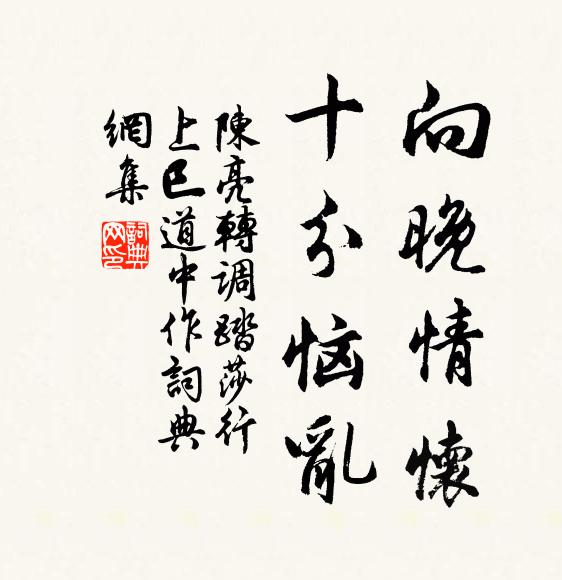 向晚情懷
十分恼亂
陳亮轉調踏莎行
上巳道中作詞典
網集
詞典
网印